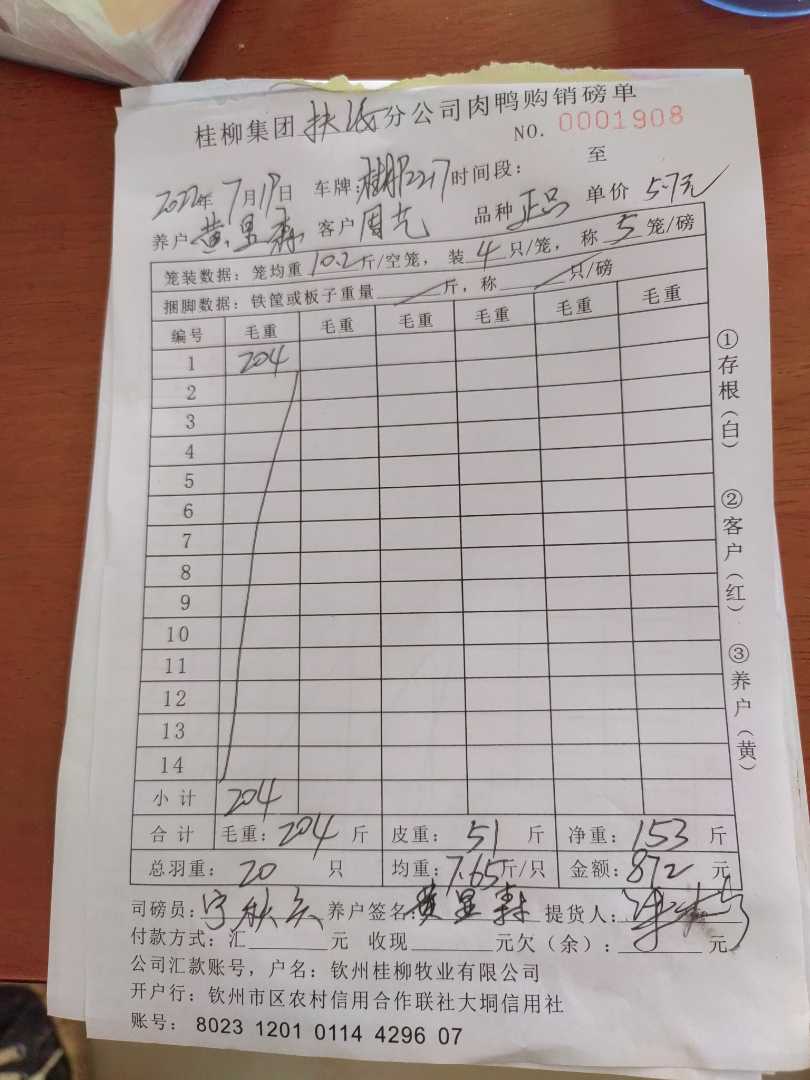 桂柳集团 扶 分公司肉鸭购销磅单
NO. 0001908
2022年 7月19日 车牌: 时间段: 至
养户 黄呈森 客户 周 品种 正品 单价 5.7元
笼装数据: 笼均重 10.2 斤/空笼, 装 4 只/笼, 称 5 笼/磅
捆脚数据: 铁筐或板子重量 斤, 称 只/磅
编号 毛重 毛重 毛重 毛重 毛重 毛重
1 204
2
3
4
5
6
7
8
9
10
11
12
13
14
小计 204
合计 毛重: 204 斤 皮重: 51 斤 净重: 153 斤
总羽重: 20 只 均重: 7.65 斤/只 金额: 872 元
司磅员: 养户签名: 黄呈森 提货人:
付款方式: 汇 元 收现 元欠(余): 元
公司汇款账号, 户名: 钦州桂柳牧业有限公司
开户行: 钦州市区农村信用合作联社大垌信用社
账号: 8023 1201 0114 4296 07
①存根(白) ②客户(红) ③养户(黄)